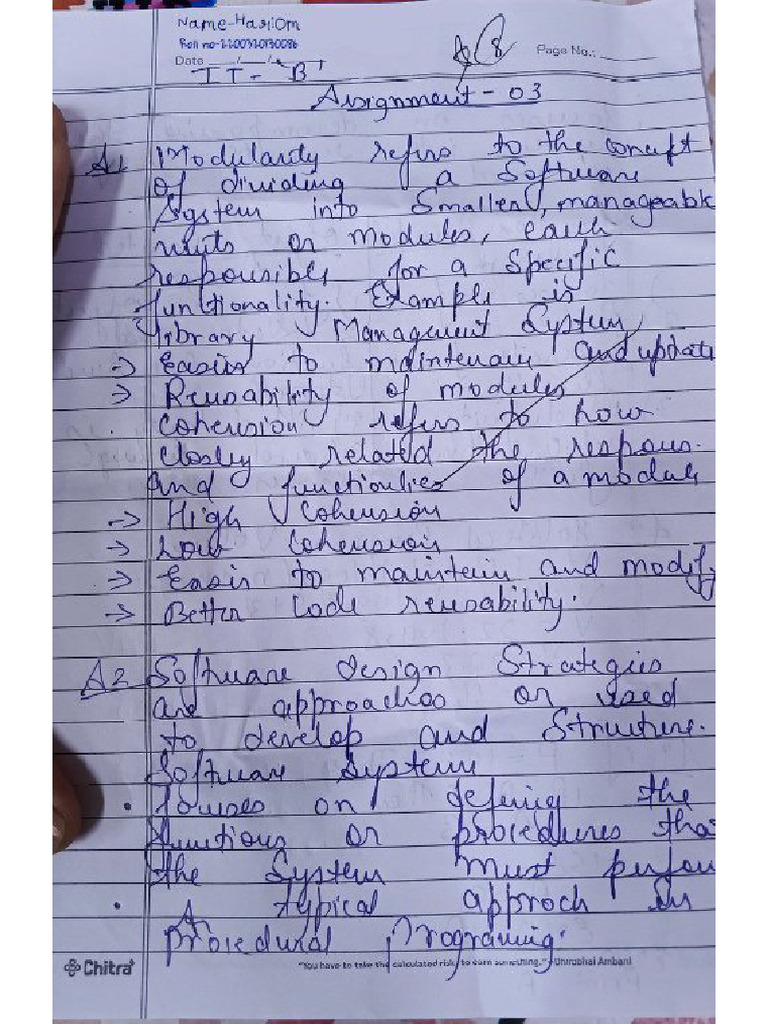 Name-HariOm
Roll no-2200320130086
Page No.:
Date
IT-B
8
Assignment-03
A1 Modularity refers to the concept
of dividing a Software
System into Smaller, manageable
units or modules, each
responsible for a Specific
functionality. Example is
library Management System
→ Easier to maintenan and update
→ Reusability of modules
Cohension refers to how
Closley related the respons.
and functionlies of a module
→ High Cohension
→ Low Cohension
→ Easir to maintein and modify
→ Better Code reusability.
A2 Software design Strategies
are approaches or used
to develop and Structure.
Software System
• focuses on defining the
functions or procedures that
the System must perfom
• A typical approch is
Procedural Programing.
Chitra
"You have to take the calculated risk, to earn something." -Dhirubhai Ambani